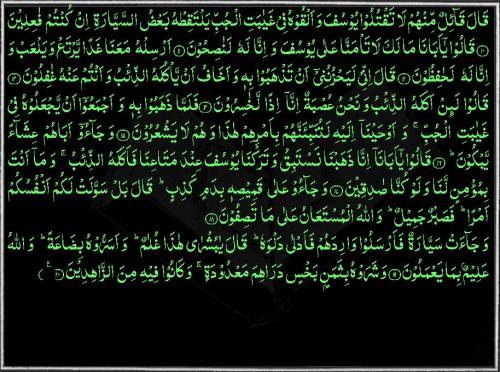 قَالَ قَآئِلٌ مِّنْهُمْ لَا تَقْتُلُوْا یُوْسُفَ وَ اَلْقُوْهُ فِیْ غَیٰبَتِ الْجُبِّ یَلْتَقِطْهُ بَعْضُ السَّیَّارَةِ اِنْ كُنْتُمْ فٰعِلِیْنَ
﴿۱۰﴾ قَالُوْا یٰۤاَبَانَا مَا لَكَ لَا تَاْمَنَّا عَلٰی یُوْسُفَ وَ اِنَّا لَهٗ لَنٰصِحُوْنَ ﴿۱۱﴾ اَرْسِلْهُ مَعَنَا غَدًا یَّرْتَعْ وَ یَلْعَبْ وَ
اِنَّا لَهٗ لَحٰفِظُوْنَ ﴿۱۲﴾ قَالَ اِنِّیْ لَیَحْزُنُنِیْۤ اَنْ تَذْهَبُوْا بِهٖ وَ اَخَافُ اَنْ یَّاْكُلَهُ الذِّئْبُ وَ اَنْتُمْ عَنْهُ غٰفِلُوْنَ ﴿۱۳﴾
قَالُوْا لَئِنْ اَكَلَهُ الذِّئْبُ وَ نَحْنُ عُصْبَةٌ اِنَّاۤ اِذًا لَّخٰسِرُوْنَ ﴿۱۴﴾ فَلَمَّا ذَهَبُوْا بِهٖ وَ اَجْمَعُوْۤا اَنْ یَّجْعَلُوْهُ فِیْ
غَیٰبَتِ الْجُبِّ ۚ وَ اَوْحَیْنَاۤ اِلَیْهِ لَتُنَبِّئَنَّهُمْ بِاَمْرِهِمْ هٰذَا وَ هُمْ لَا یَشْعُرُوْنَ ﴿۱۵﴾ وَ جَآءُوْۤ اَبَاهُمْ عِشَآءً
یَّبْكُوْنَ ؕ ﴿۱۶﴾ قَالُوْا یٰۤاَبَانَاۤ اِنَّا ذَهَبْنَا نَسْتَبِقُ وَ تَرَكْنَا یُوْسُفَ عِنْدَ مَتَاعِنَا فَاَكَلَهُ الذِّئْبُ ۚ وَ مَاۤ اَنْتَ
بِمُؤْمِنٍ لَّنَا وَ لَوْ كُنَّا صٰدِقِیْنَ ﴿۱۷﴾ وَ جَآءُوْ عَلٰی قَمِیْصِهٖ بِدَمٍ كَذِبٍ ؕ قَالَ بَلْ سَوَّلَتْ لَكُمْ اَنْفُسُكُمْ
اَمْرًا ؕ فَصَبْرٌ جَمِیْلٌ ؕ وَ اللّٰهُ الْمُسْتَعَانُ عَلٰی مَا تَصِفُوْنَ ﴿۱۸﴾
وَ جَآءَتْ سَیَّارَةٌ فَاَرْسَلُوْا وَارِدَهُمْ فَاَدْلٰی دَلْوَهٗ ؕ قَالَ یٰبُشْرٰی هٰذَا غُلٰمٌ ؕ وَ اَسَرُّوْهُ بِضَاعَةً ؕ وَ اللّٰهُ
عَلِیْمٌۢ بِمَا یَعْمَلُوْنَ ﴿۱۹﴾ وَ شَرَوْهُ بِثَمَنٍۭ بَخْسٍ دَرَاهِمَ مَعْدُوْدَةٍ ۚ وَ كَانُوْا فِیْهِ مِنَ الزَّاهِدِیْنَ ﴿۲۰﴾